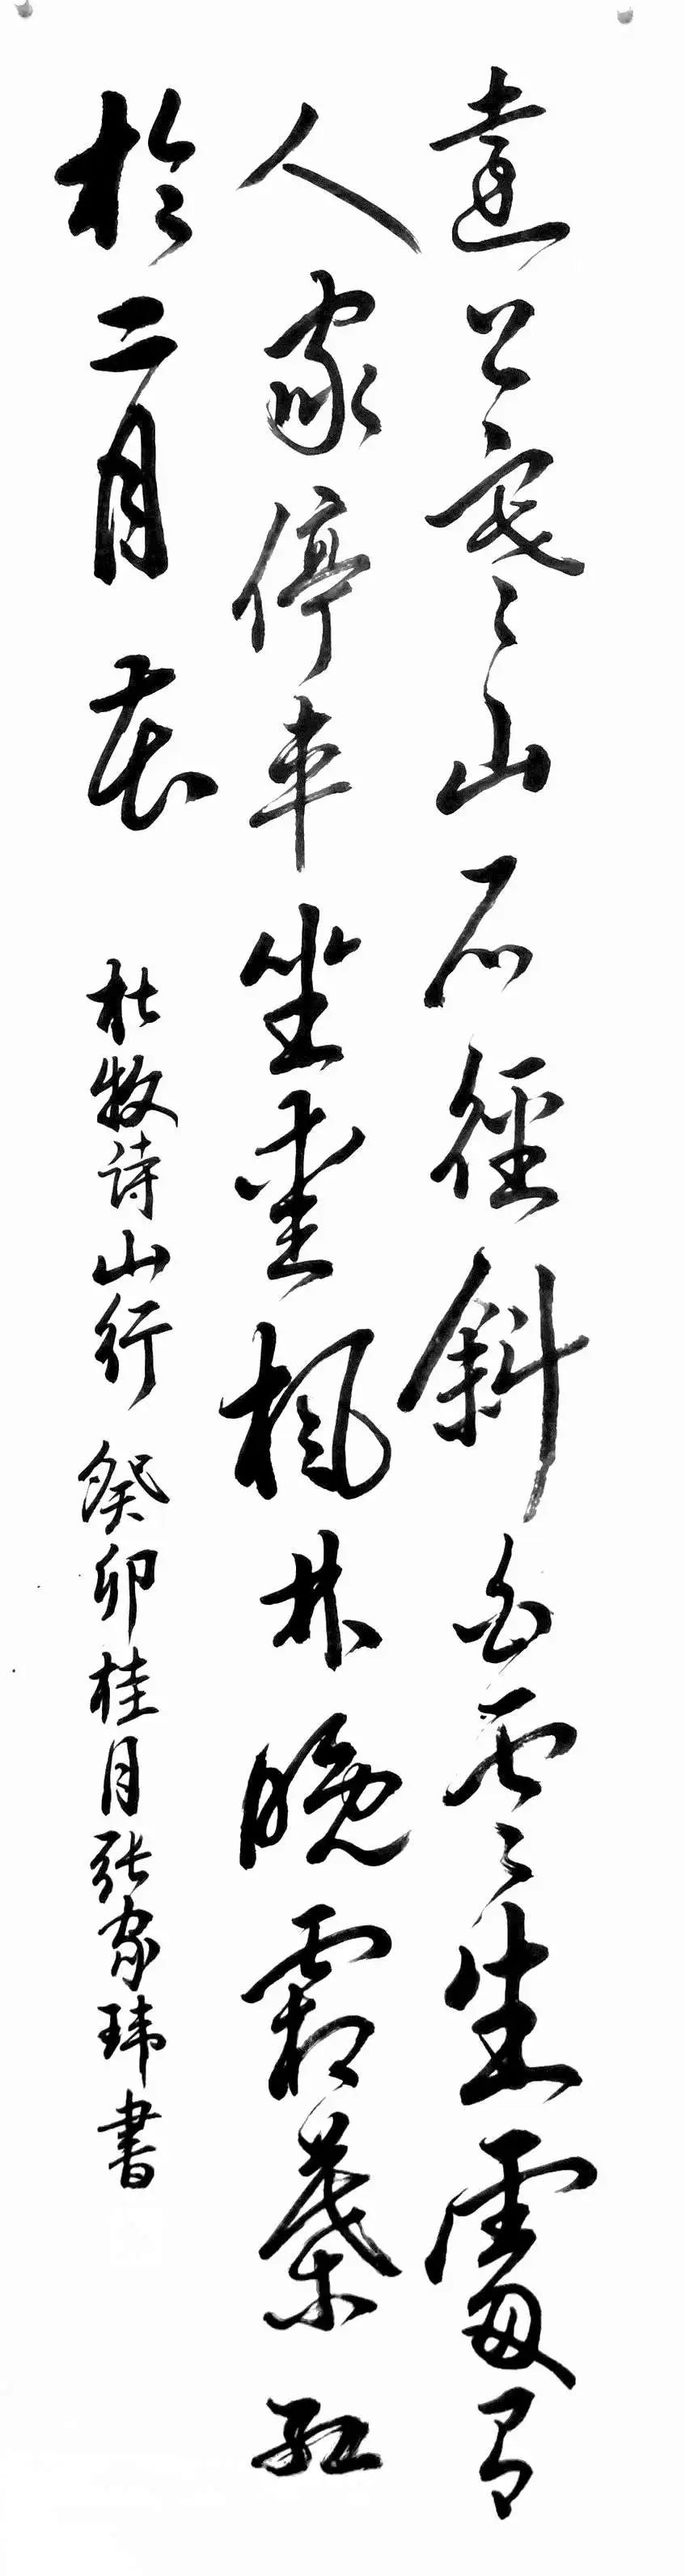 遠上寒山石徑斜白雲生處有
人家停車坐愛楓林晚霜葉紅
於二月花 杜牧詩山行 癸卯桂月張家瑋書